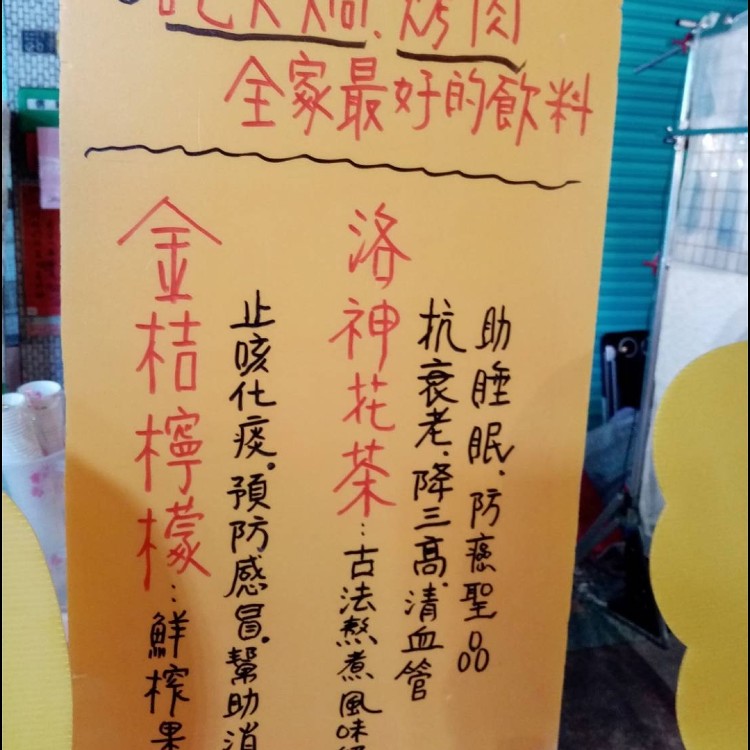 吃火鍋、烤肉
全家最好的飲料
助睡眠、防癌聖品
抗衰老、降三高、清血管
洛神花茶:古法熬煮風味
止咳化痰。預防感冒。幫助消
金桔檸檬:鮮榨果